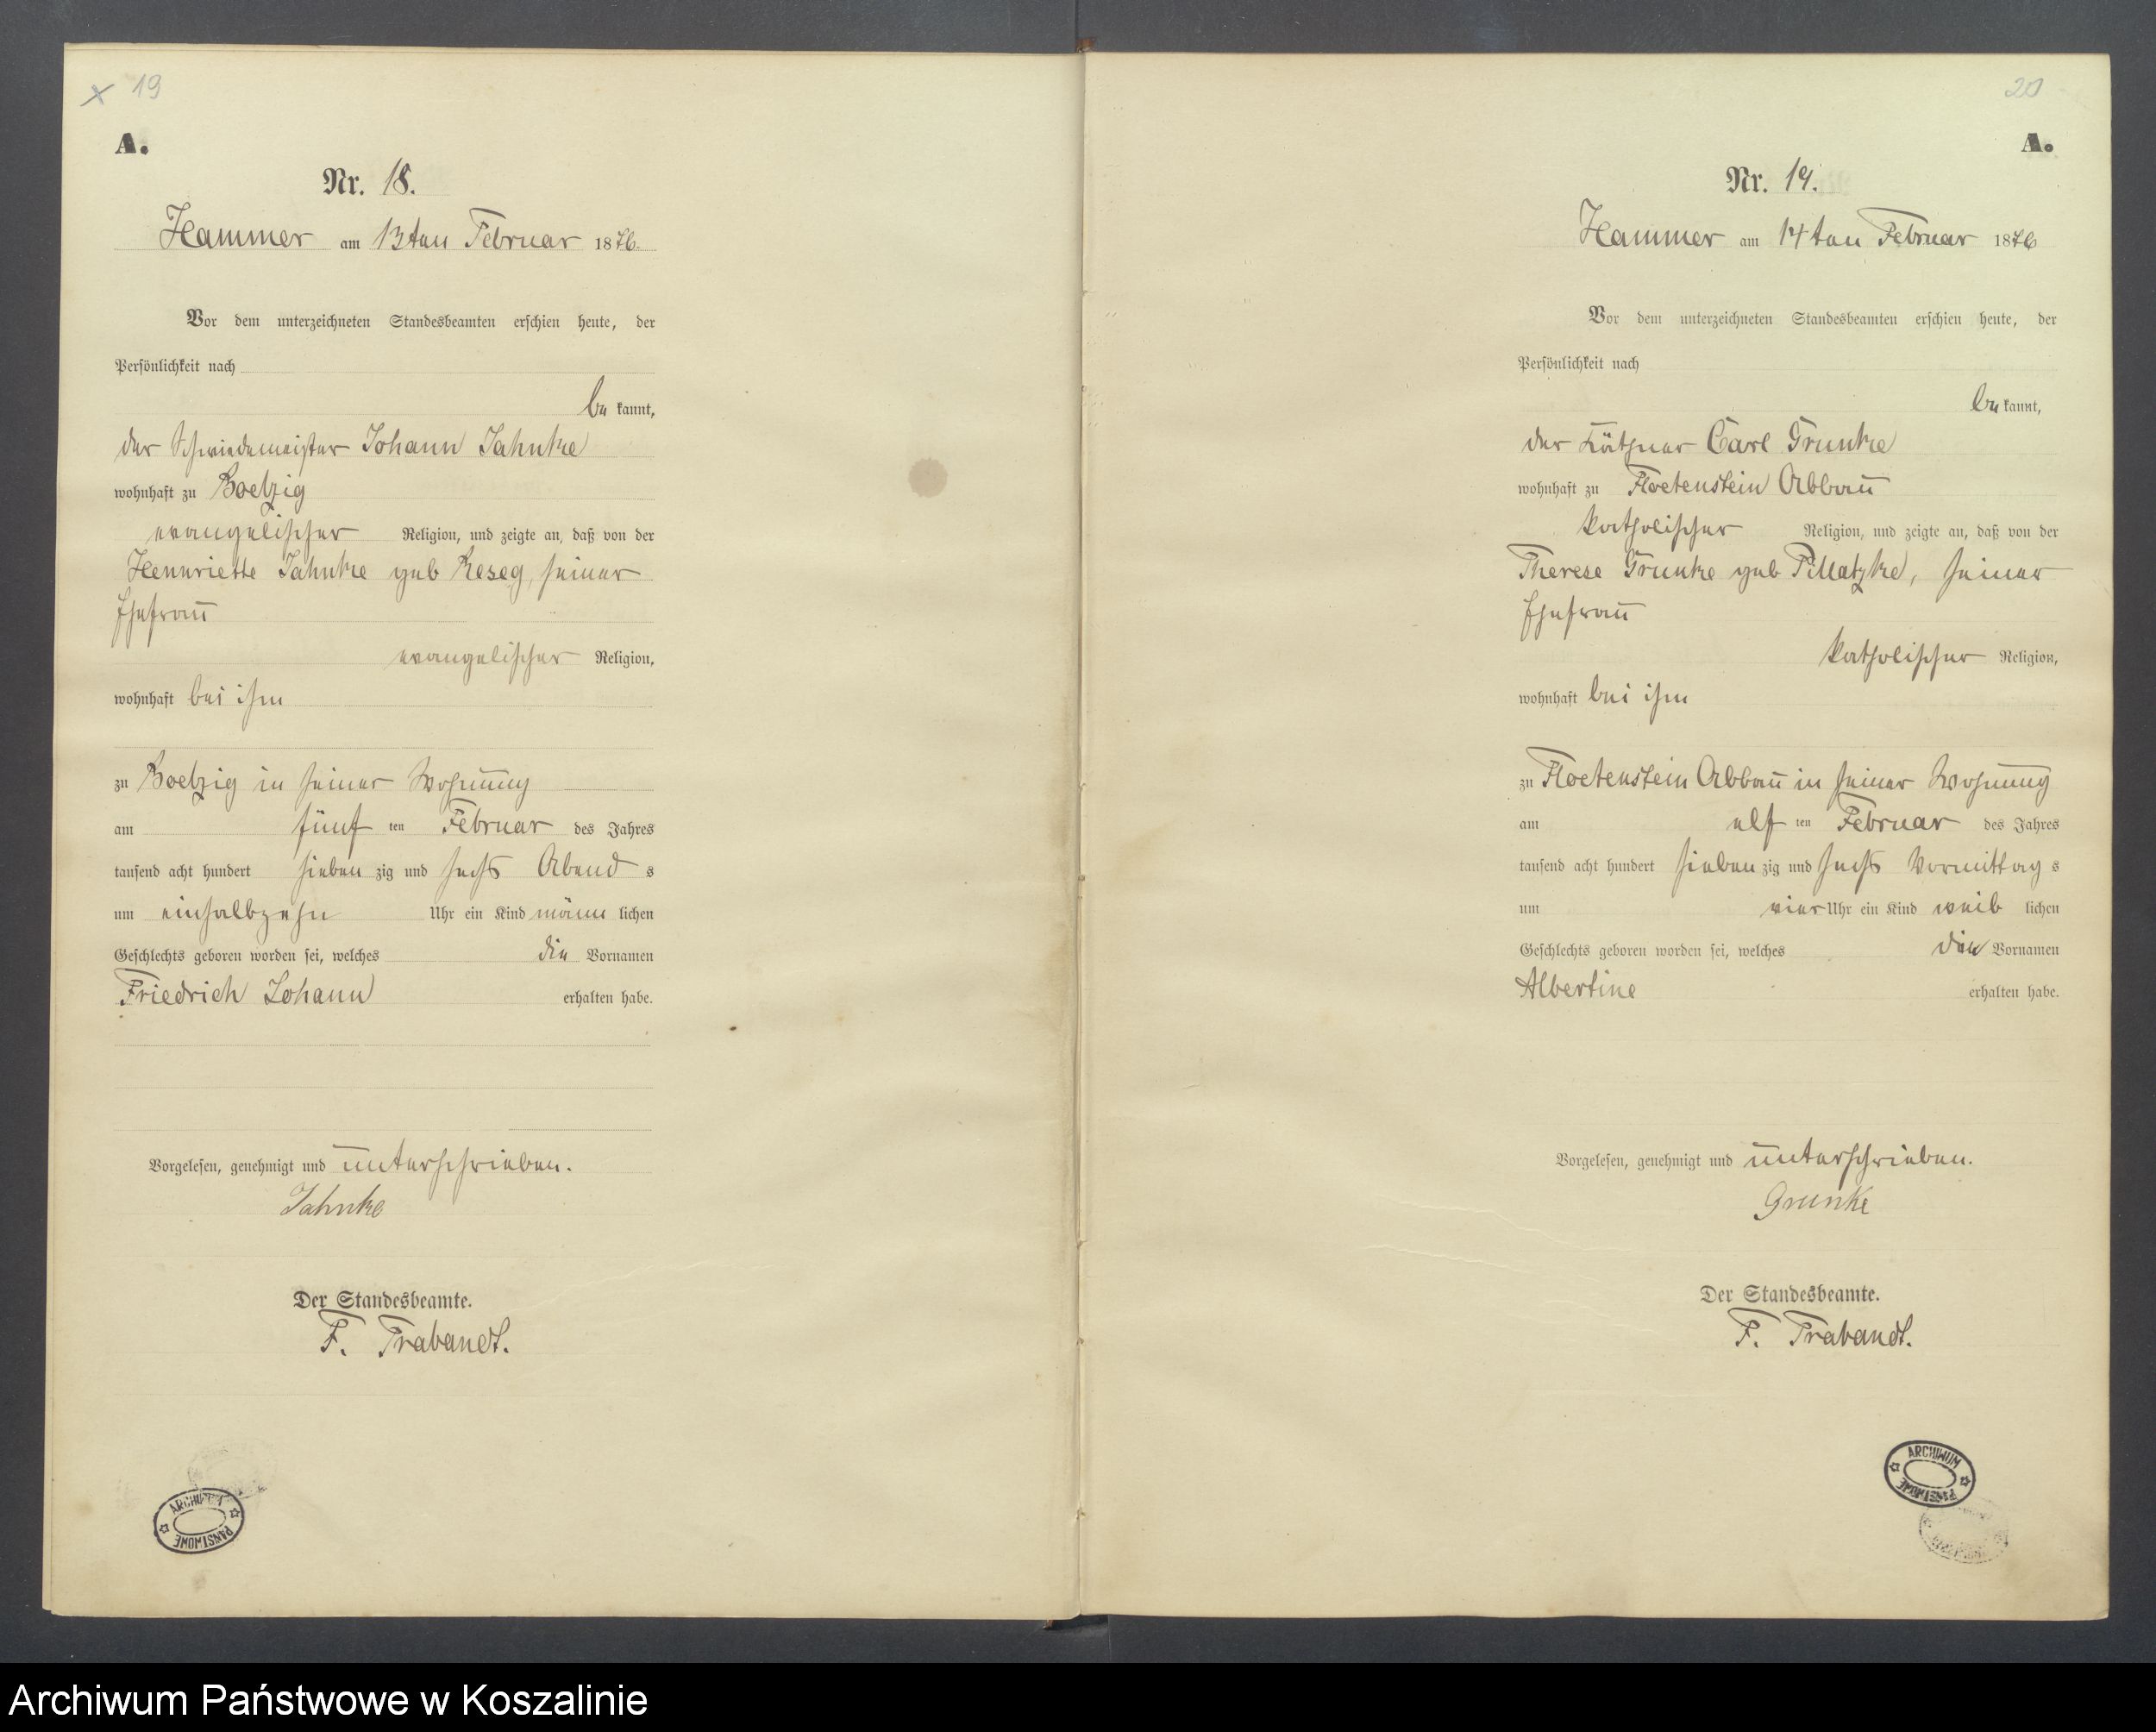 19
A.
Nr. 18.
Hammer am 13ten Februar 1876.
Vor dem unterzeichneten Standesbeamten erschien heute, der
Persönlichkeit nach
be kannt,
der Schmiedemeister Johann Jahnke
wohnhaft zu Boelzig
evangelischer Religion, und zeigte an, daß von der
Hennriette Jahnke geb Reseg, seiner
Ehefrau
evangelischer Religion,
wohnhaft bei ihm
zu Boelzig in seiner Wohnung
am fünf ten Februar des Jahres
tausend acht hundert sieben zig und sechs Abend s
um einhalbzehn Uhr ein Kind männ lichen
Geschlechts geboren worden sei, welches die Vornamen
Friedrich Johann erhalten habe.
Vorgelesen, genehmigt und unterschrieben.
Jahnke
Der Standesbeamte.
F. Trabandt.
ARCHIWUM PAŃSTWOWE
20
A.
Nr. 19.
Hammer am 14ten Februar 1876
Vor dem unterzeichneten Standesbeamten erschien heute, der
Persönlichkeit nach
be kannt,
der Käthner Carl Grunke
wohnhaft zu Floetenstein Abbau
katholischer Religion, und zeigte an, daß von der
Therese Grunke geb Pillatzke, seiner
Ehefrau
katholischer Religion,
wohnhaft bei ihm
zu Floetenstein Abbau in seiner Wohnung
am elf ten Februar des Jahres
tausend acht hundert sieben zig und sechs Vormittag s
um vier Uhr ein Kind weib lichen
Geschlechts geboren worden sei, welches den Vornamen
Albertine erhalten habe.
Vorgelesen, genehmigt und unterschrieben.
Grunke
Der Standesbeamte.
F. Trabandt.
ARCHIWUM PAŃSTWOWE
Archiwum Państwowe w Koszalinie